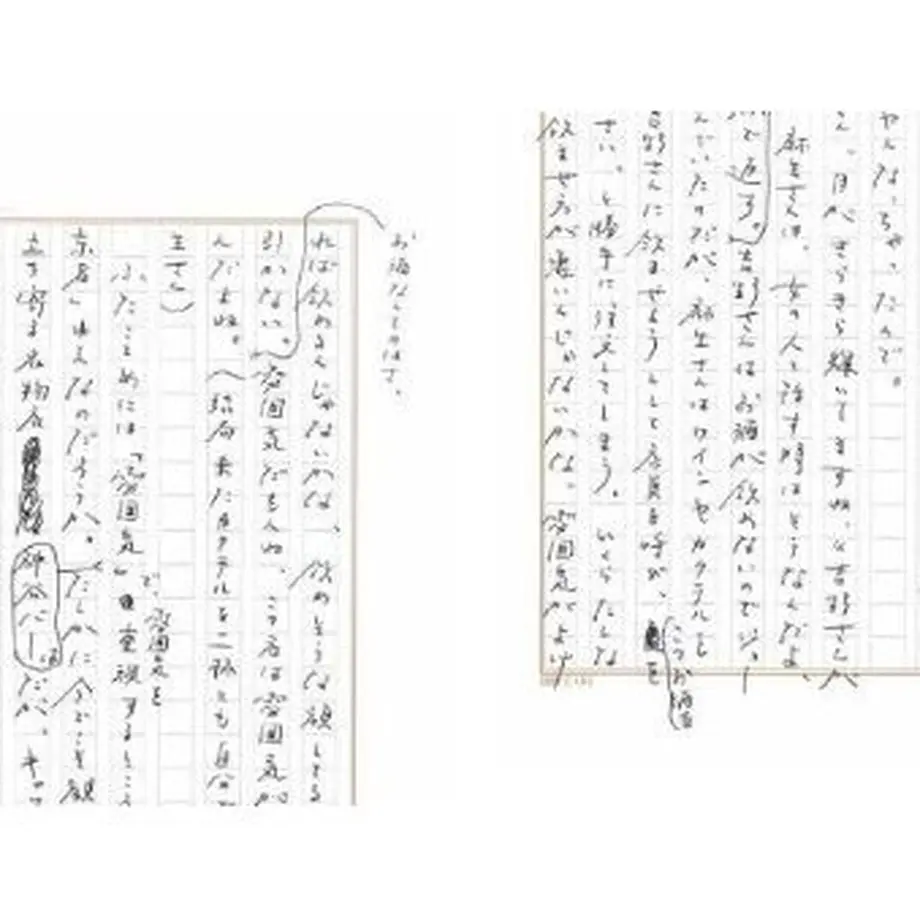 やんなっちゃったんで。
ん。目がきらきら輝いてますね」と吉野さんが
麻生さんは、女の人と話す時はそうなんだよ、
と返す。吉野さんはお酒が飲めないのでジー
んでいたのだが、麻生さんはワインやカクテルを
吉野さんに飲ませようとして店員を呼び、
このお酒を
さい。と勝手に注文してしまう。いくらたしな
飲ませ方が悪いんじゃないかな。雰囲気がよけ
お酒なんてのはさ、
れば飲めるんじゃないかな、飲めそうな顔してる
引かない。雰囲気だもんね。この店は雰囲気が
んだよね。(結局来たカクテルを二杯とも自分で
ます)
で、雰囲気を
ふたことめには「雰囲気」重視するところ
京者」ゆえなのだろうか。たしかに今どこを観
立ち寄る名物店神谷バーだが、キャッ